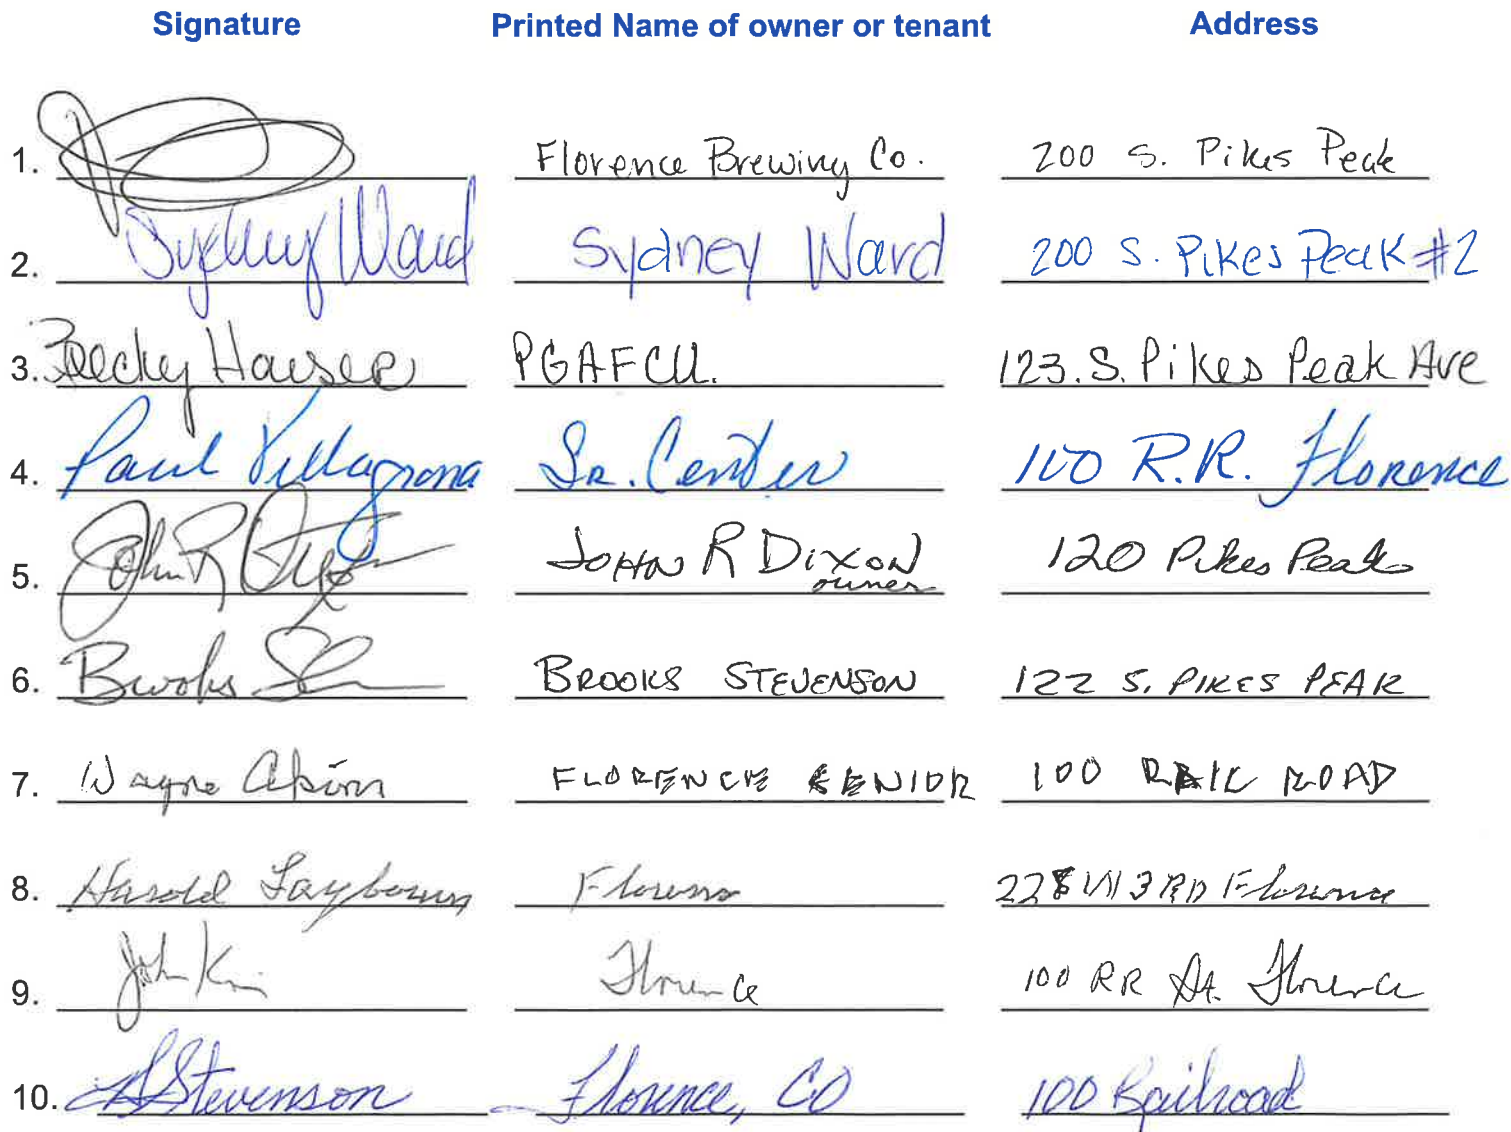 Signature Printed Name of owner or tenant Address
1. Florence Brewing Co. 200 S. Pikes Peak
2. Sydney Ward Sydney Ward 200 S. Pikes Peak #2
3. Becky Hauser PGAFCU. 123. S. Pikes Peak Ave
4. Paul Villagrana Sr. Center 100 R.R. Florence
5. John R Dixon JOHN R DIXON owner 120 Pikes Peak
6. Brooks BROOKS STEVENSON 122 S. PIKES PEAK
7. Wayne FLORENCE SENIOR 100 RAIL ROAD
8. Harold Florence 228 W 3RD Florence
9. John Florence 100 RR St. Florence
10. Stevenson Florence, CO 100 Railroad